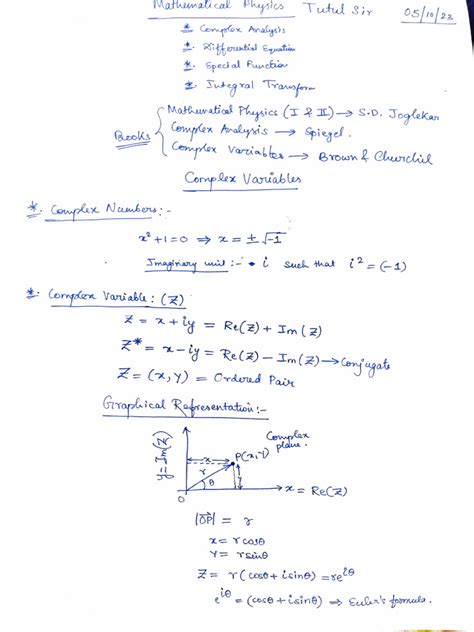 Mathematical Physics Tutul Sir 05/10/23
* Complex Analysis
* Differential Equation
* Special Function
* Integral Transform
Books { Mathematical Physics (I & II) → S.D. Joglekar
Complex Analysis → Spiegel.
Complex Variables → Brown & Churchil
Complex Variables
*. Complex Numbers:-
x²+1=0 ⇒ x = ±√-1
Imaginary unit:- • i such that i² = (-1)
*. Complex Variable: (Z)
Z = x + iy = Re(Z) + Im(Z)
Z* = x - iy = Re(Z) - Im(Z) → Conjugate
Z = (x, y) = Ordered Pair
Graphical Representation:-
y = Im(Z)
x
r
θ
y
P(x,y)
Complex plane.
O
x = Re(Z)
|OP⃗| = r
x = r cosθ
y = r sinθ
Z = r (cosθ + i sinθ) = re^{iθ}
e^{iθ} = (cosθ + i sinθ) ⇒ Euler's formula.